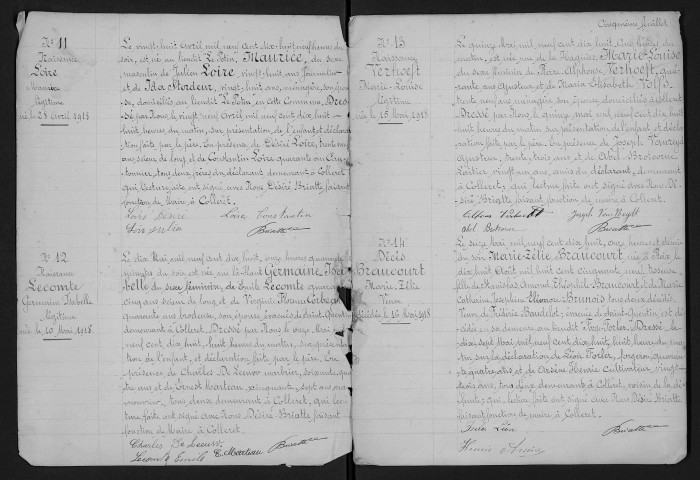 N° 11
Naissance
Loire
Maurice
légitime
née le 28 Avril 1918
Le vingt-huit Avril mil neuf cent dix-huit neuf heures du
soir, est né au lieudit Le Potin, Maurice, du sexe
masculin de Julien Loire, vingt-huit ans journalier
et de Ida Stordeur, vingt-huit ans, ménagère, son épou-
se, domiciliés au lieudit Le Potin en cette Commune Dres-
sé par Nous, le vingt neuf Avril mil neuf cent dix huit
huit heures du matin, sur présentation de l'enfant et déclara-
tion faite par le père. En présence de Désiré Loire, trente
ans scieur de long et de Constantin Loire quarante ans
tous deux frères du déclarant demeurant à Colleret
qui lecture faite ont signé avec Nous Désiré Briatte faisant
fonction de Maire à Colleret.
Loire Désiré Loire Constantin
Briatte
N° 12
Naissance
Lecomte
Germaine Isabelle
légitime
née le 10 Mai 1918
Le dix Mai mil neuf cent dix huit, onze heures quarante
minutes du soir est née Germaine Isa-
belle du sexe féminin, de Emile Lecomte quarante
cinq ans scieur de long et de Virginie
quarante ans brodeuse, son épouse évacués de Saint Quentin
demeurant à Colleret. Dressé par Nous le onze Mai
neuf cent dix huit, huit heures du matin, sur présenta-
tion de l'enfant, et déclaration faite par le père. En
présence de Charles De Leeuw marbrier, soixante qua-
tre ans et de Ernest Marteau cinquante sept ans
tous deux demeurant à Colleret, qui lec-
ture faite ont signé avec Nous Désiré Briatte faisant
fonction de Maire à Colleret.
Charles De Leeuw
Lecomte Emile E. Marteau Briatte
Cinquième feuillet
N° 13
Naissance
Verhoest
Marie-Louise
légitime
née le 15 Mai 1918
Le quinze Mai, mil neuf cent dix huit, une heure du
matin, est née Marie Louise
du sexe féminin de Pierre Alphonse Verhoest, qua-
rante ans Ajusteur et de Maria Elisabeth Wolfs
trente neuf ans ménagère son épouse, domiciliés à Colleret
Dressé par Nous le quinze mai, mil neuf cent dix huit
huit heures du matin sur présentation de l'enfant et déclara-
tion faite par le père. En présence de Joseph
Ajusteur, trente trois ans et de Abel
Laitier vingt un ans, amis du déclarant, demeurant
à Colleret; qui lecture faite ont signé avec Nous Dé-
siré Briatte faisant fonction de maire à Colleret.
Briatte
N° 14
Décès
Braucourt
Marie-Zélie
Veuve
décédée le 16 Mai 1918
Le seize Mai mil neuf cent dix huit, onze heures et demie
du soir Marie-Zélie Braucourt née à
dix huit Août mil huit cent cinquante neuf
fille de Stanislas Amand Théophile Braucourt et de Marie
Catherine Joséphine Eléonore Brunois tous deux décédés,
Veuve de Frédéric Baudelot, évacuée de Saint-Quentin est dé-
cédée en sa demeure au lieudit Dressé le
dix sept Mai mil neuf cent dix huit, huit heures du ma-
tin sur la déclaration de Léon forgeron, quaran-
te quatre ans et de Arsène Hennie Cultivateur, vingt-
trois ans, tous deux demeurant à Colleret, voisins de la dé-
funte; qui, lecture faite ont signé avec Nous Désiré Briatte
faisant fonction de maire à Colleret.
Léon Briatte